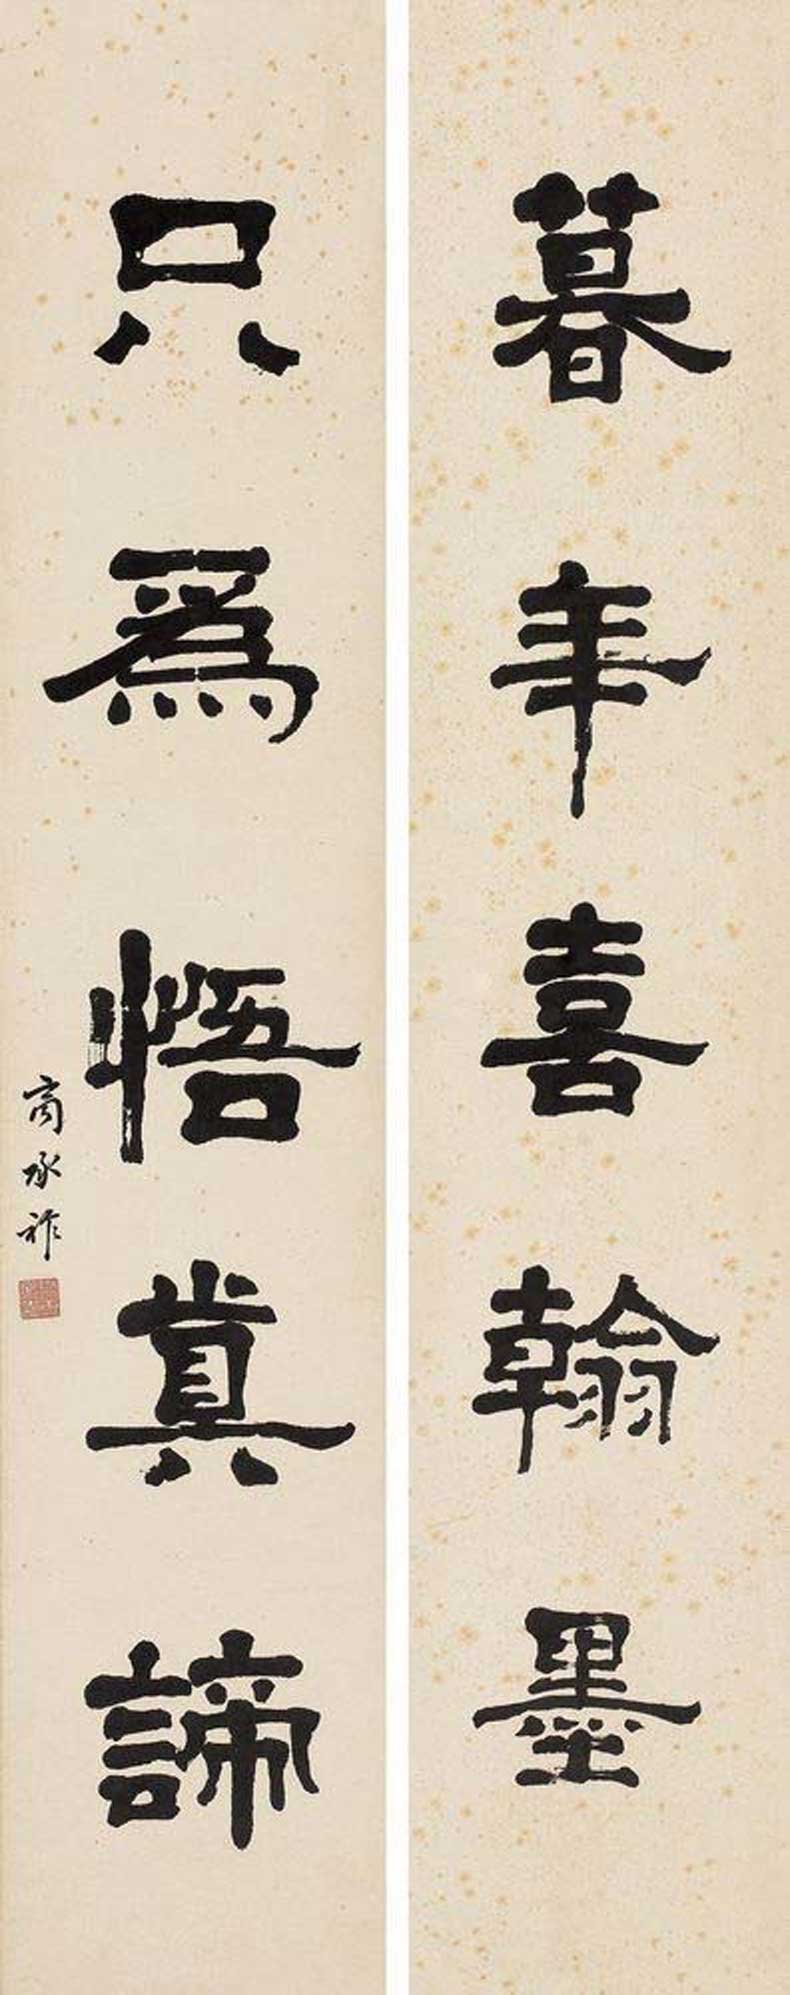 暮年喜翰墨
只為悟真諦
商承祚